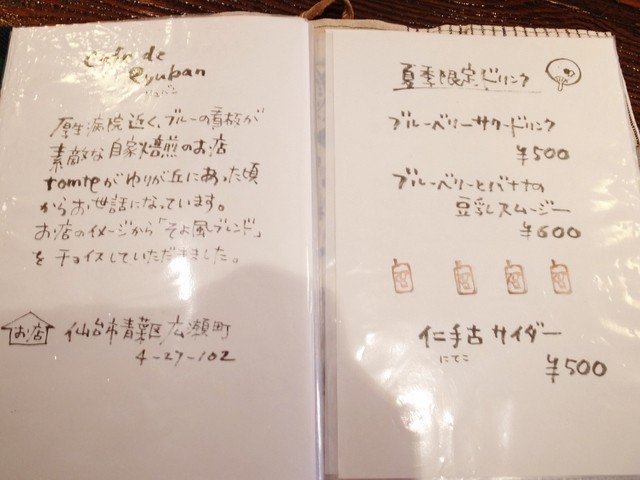 Cafe de
Ryuban
リュバン
厚生病院近く、ブルーの看板が
素敵な自家焙煎のお店
tomteがゆりが丘にあった頃
からお世話になっています。
お店のイメージから「そよ風ブレンド」
を チョイスしていただきました。
お店 仙台市青葉区広瀬町
4-27-102
夏季限定ドリンク
ブルーベリーサワードリンク
¥500
ブルーベリーとバナナの
豆乳スムージー
¥600
仁手古 サイダー
にてこ
¥500